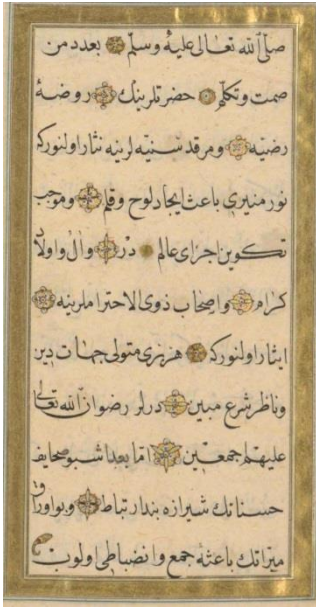 صلى الله تعالى عليه وسلم بعدد من
صمت وتكلم حضرتلرينك روضهٔ
رضيه ومرقد سنيه لرينه نثار اولنور كه
نور منيرى باعث ايجاد لوح وقلم وموجب
تكوين اجزاى عالم در وآل واولاد
كرام واصحاب ذوى الاحتراملرينه
ايثار اولنور كه هر برى متولى جهات دين
وناظر شرع مبين درلر رضوان الله تعالى
عليهم اجمعين اما بعد اشبو صحايف
حسناتك شيرازه بند ارتباط وبو اوراق
ميراتك باعثهٔ جمع وانضباطى اولوب